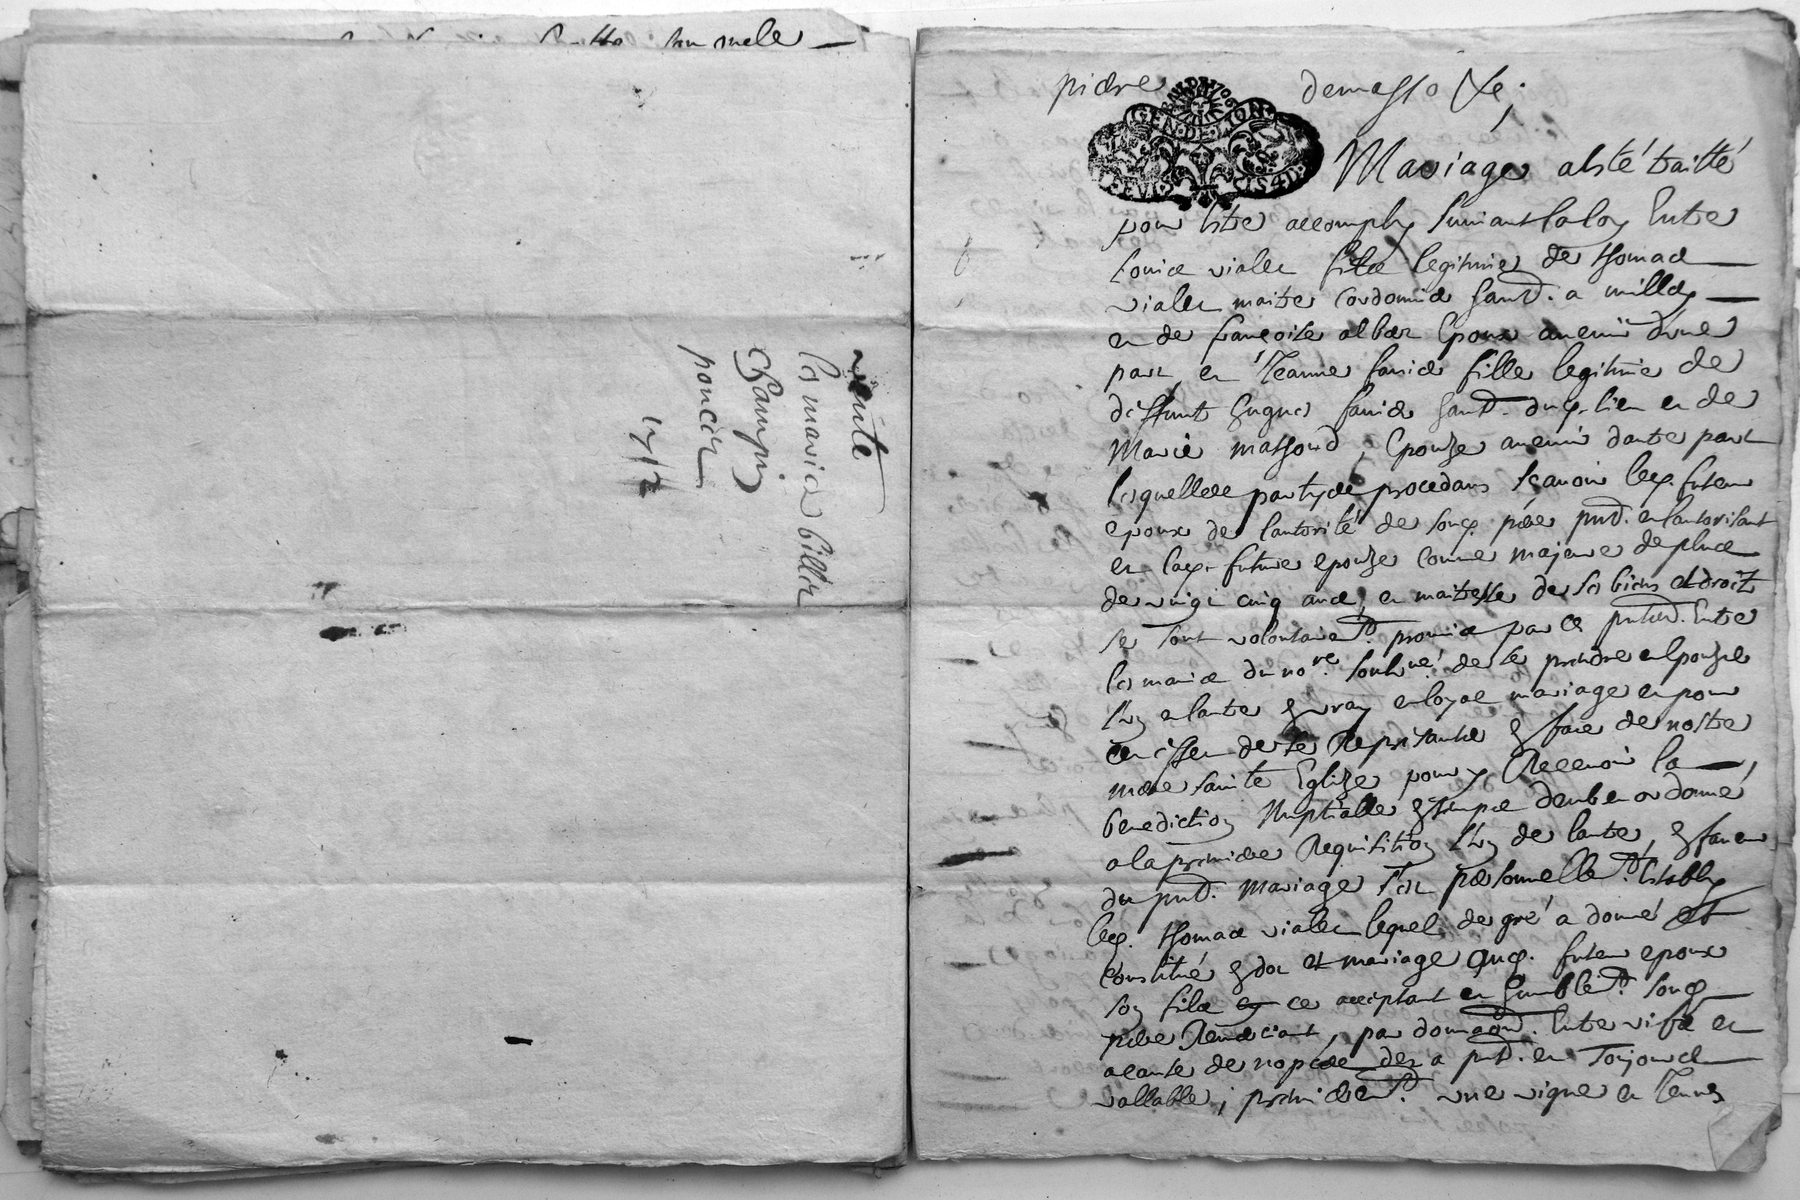 vente
les maries billet
champin
poncet
1712
pierre demasso &c;
GEN·DE·LION·
Mariage a esté traitté
pour estre accomply suivant la loy Entre
Louis vialet fils legitime de thomas
vialet maitre Cordonnier hant. a millery
et de françoise albert Epoux avenir d'une
part, et Jeanne favier fille legitime de
deffunt hugues favier hant. dud. lieu et de
Marie massond, Epouze avenir dautre part
lesquelles partyes procedans scavoir led. futeur
epoux de lautorité de sond. pere pnt. et lautorisant
et lad. future epouze comme majeure de plus
de vingt cinq ans, et maitresse de ses biens et droitz
se sont volontairemt. promis par ces pntes. Entre
les mains du nore. soubne. de se prendre en Epouze
l'un et lautre en vray et loyal mariage et pour
cet effet de se Representer en face de nostre
mere sainte Eglize pour y Recevoir la
benediction Nuptialle en temps deub et ordonné
a la premiere Requisition l'un de lautre, en faveur
du pnt. mariage s'est personnellemt. Estably
led. thomas vialet lequel de gré a donné et
constitué en dot et mariage aud. futeur epoux
son fils ce acceptant et humblemt. sond.
pere Remerciant, par donnaon. Entre vifs et
a cause de nopces des a pnt. et Toujours
vallable; premieremt. une vigne et Terres